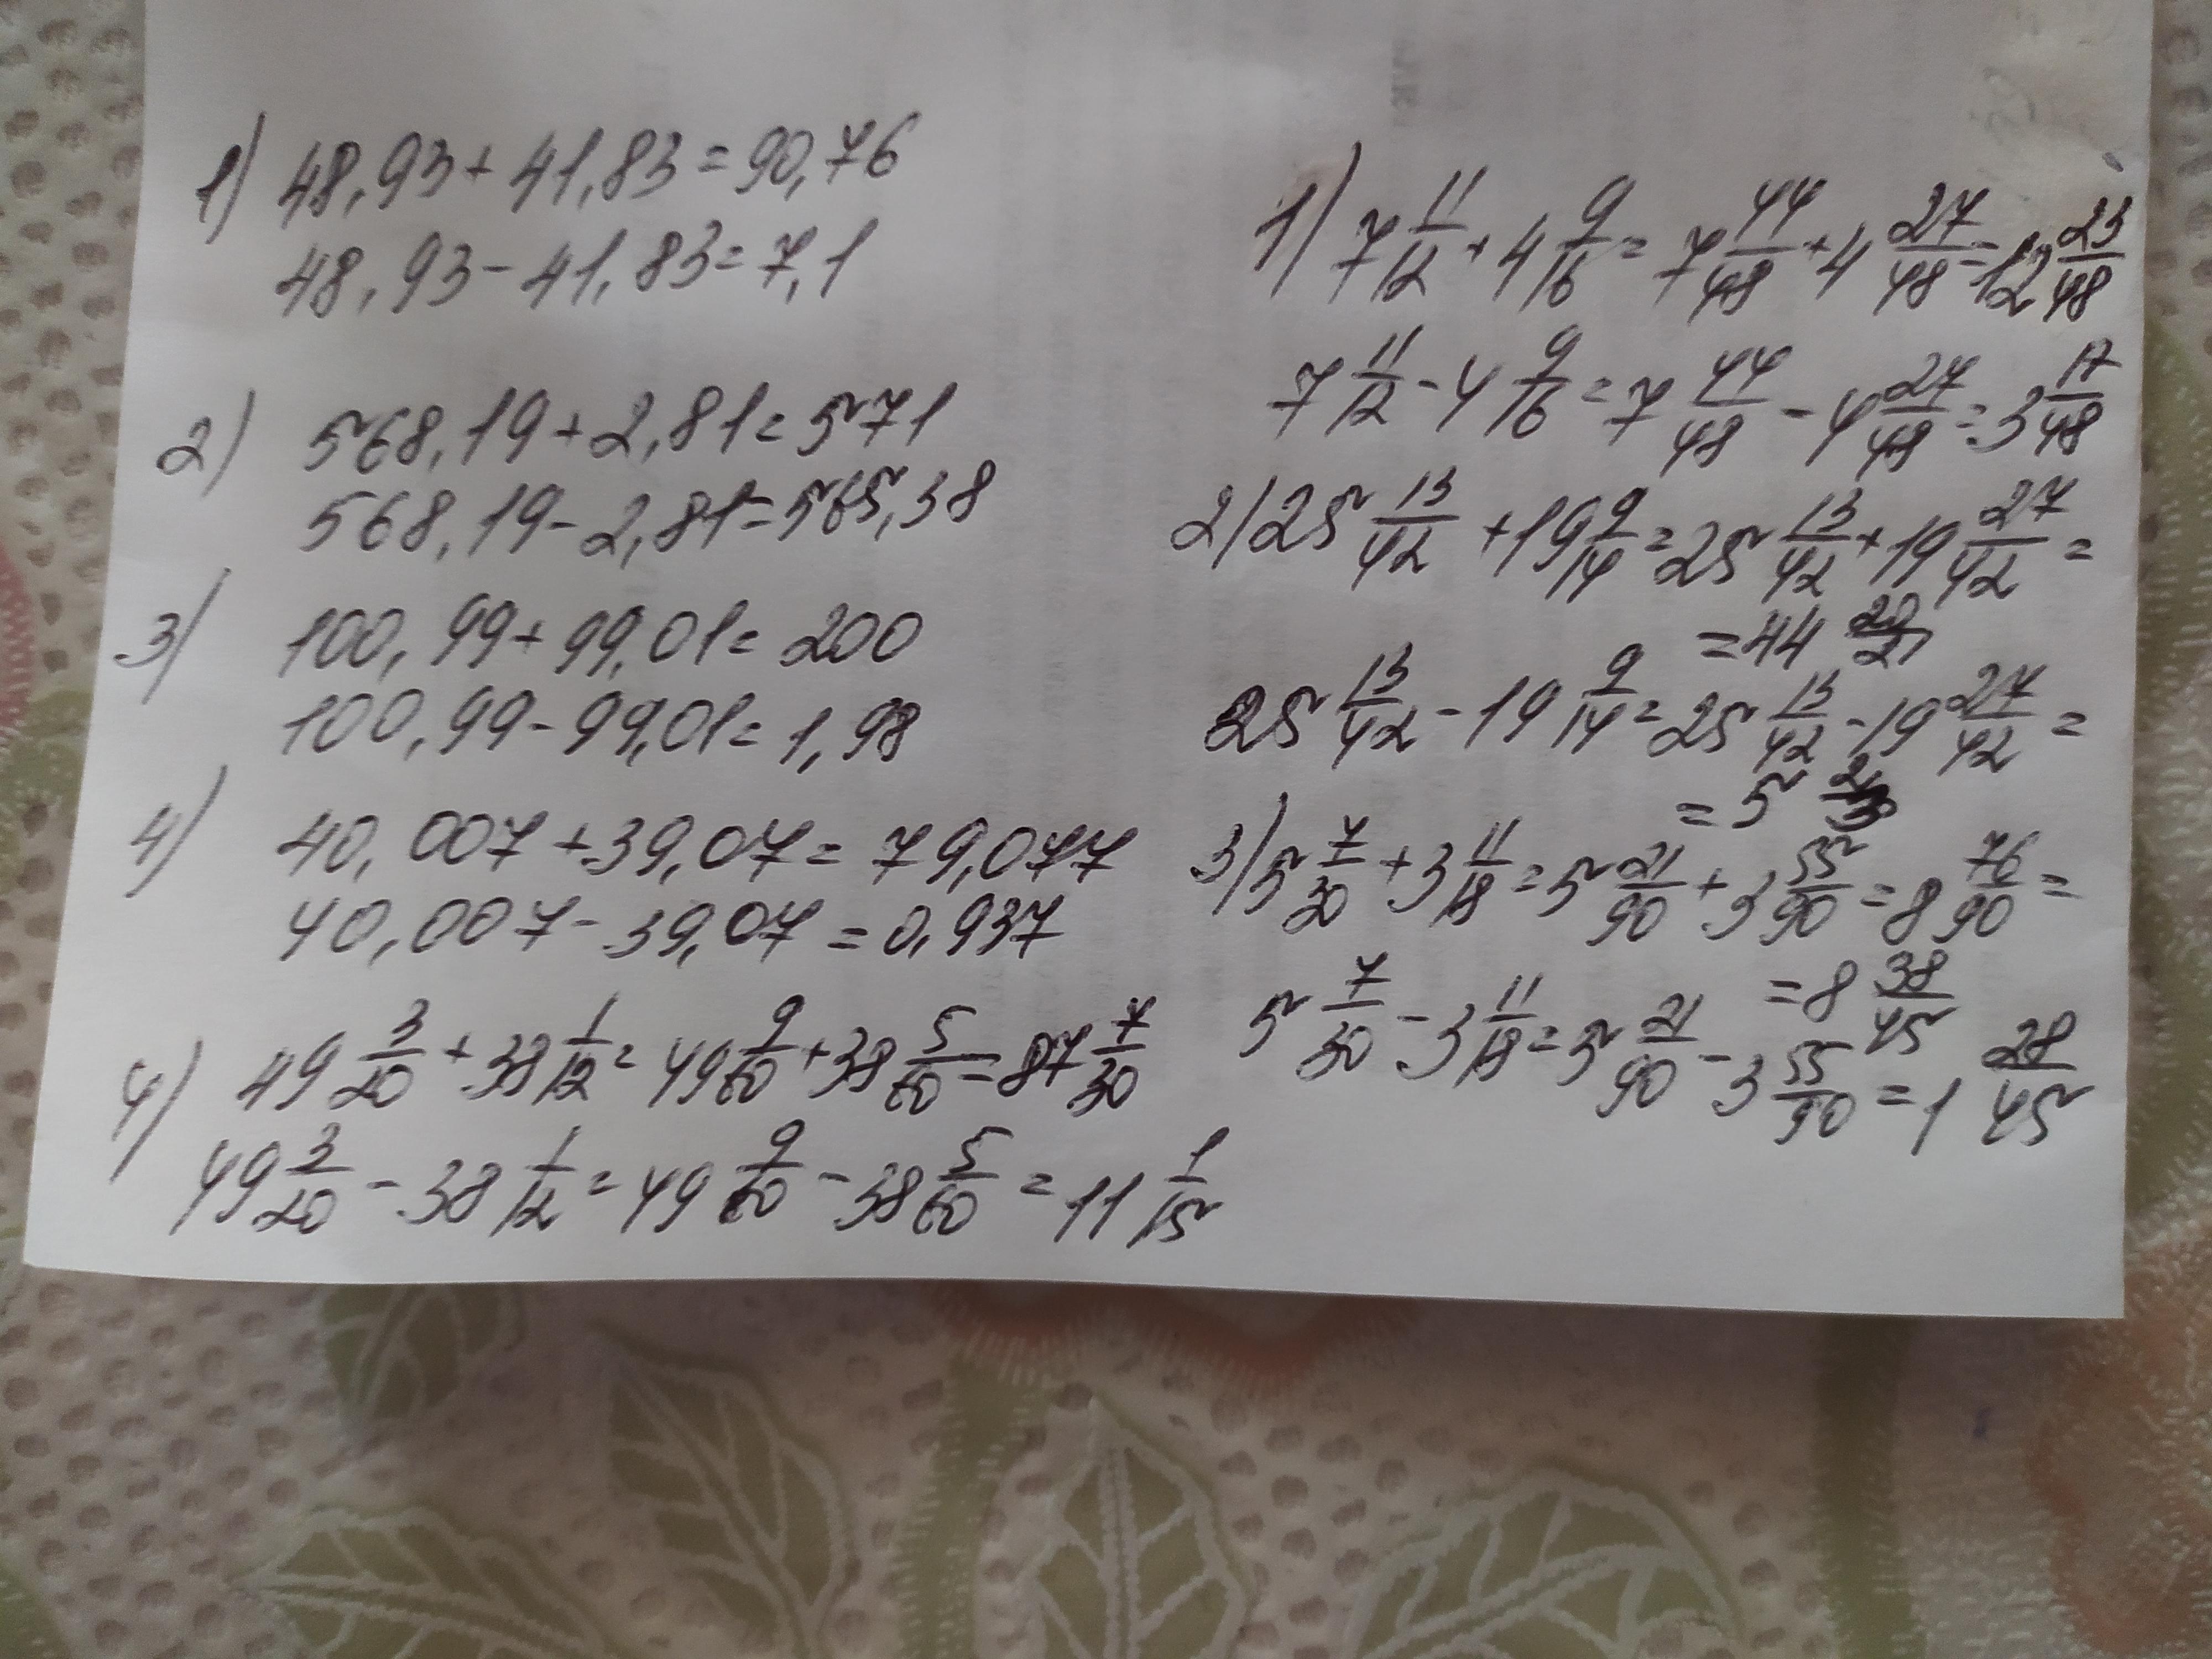 1) 48,93 + 41,83 = 90,76
48,93 - 41,83 = 7,1
2) 568,19 + 2,81 = 571
568,19 - 2,81 = 565,38
3) 100,99 + 99,01 = 200
100,99 - 99,01 = 1,98
4) 40,007 + 39,07 = 79,077
40,007 - 39,07 = 0,937
4) 49 3/20 + 38 1/12 = 49 9/60 + 38 5/60 = 87 7/30
49 3/20 - 38 1/12 = 49 9/60 - 38 5/60 = 11 1/15
1) 7 11/12 + 4 9/16 = 7 44/48 + 4 27/48 = 12 23/48
7 11/12 - 4 9/16 = 7 44/48 - 4 27/48 = 3 17/48
2) 25 13/42 + 19 9/14 = 25 13/42 + 19 27/42 =
= 44 20/21
25 13/42 - 19 9/14 = 25 13/42 - 19 27/42 =
= 5 2/3
3) 5 7/30 + 3 11/18 = 5 21/90 + 3 55/90 = 8 76/90 =
= 8 38/45
5 7/30 - 3 11/18 = 5 21/90 - 3 55/90 = 1 28/45